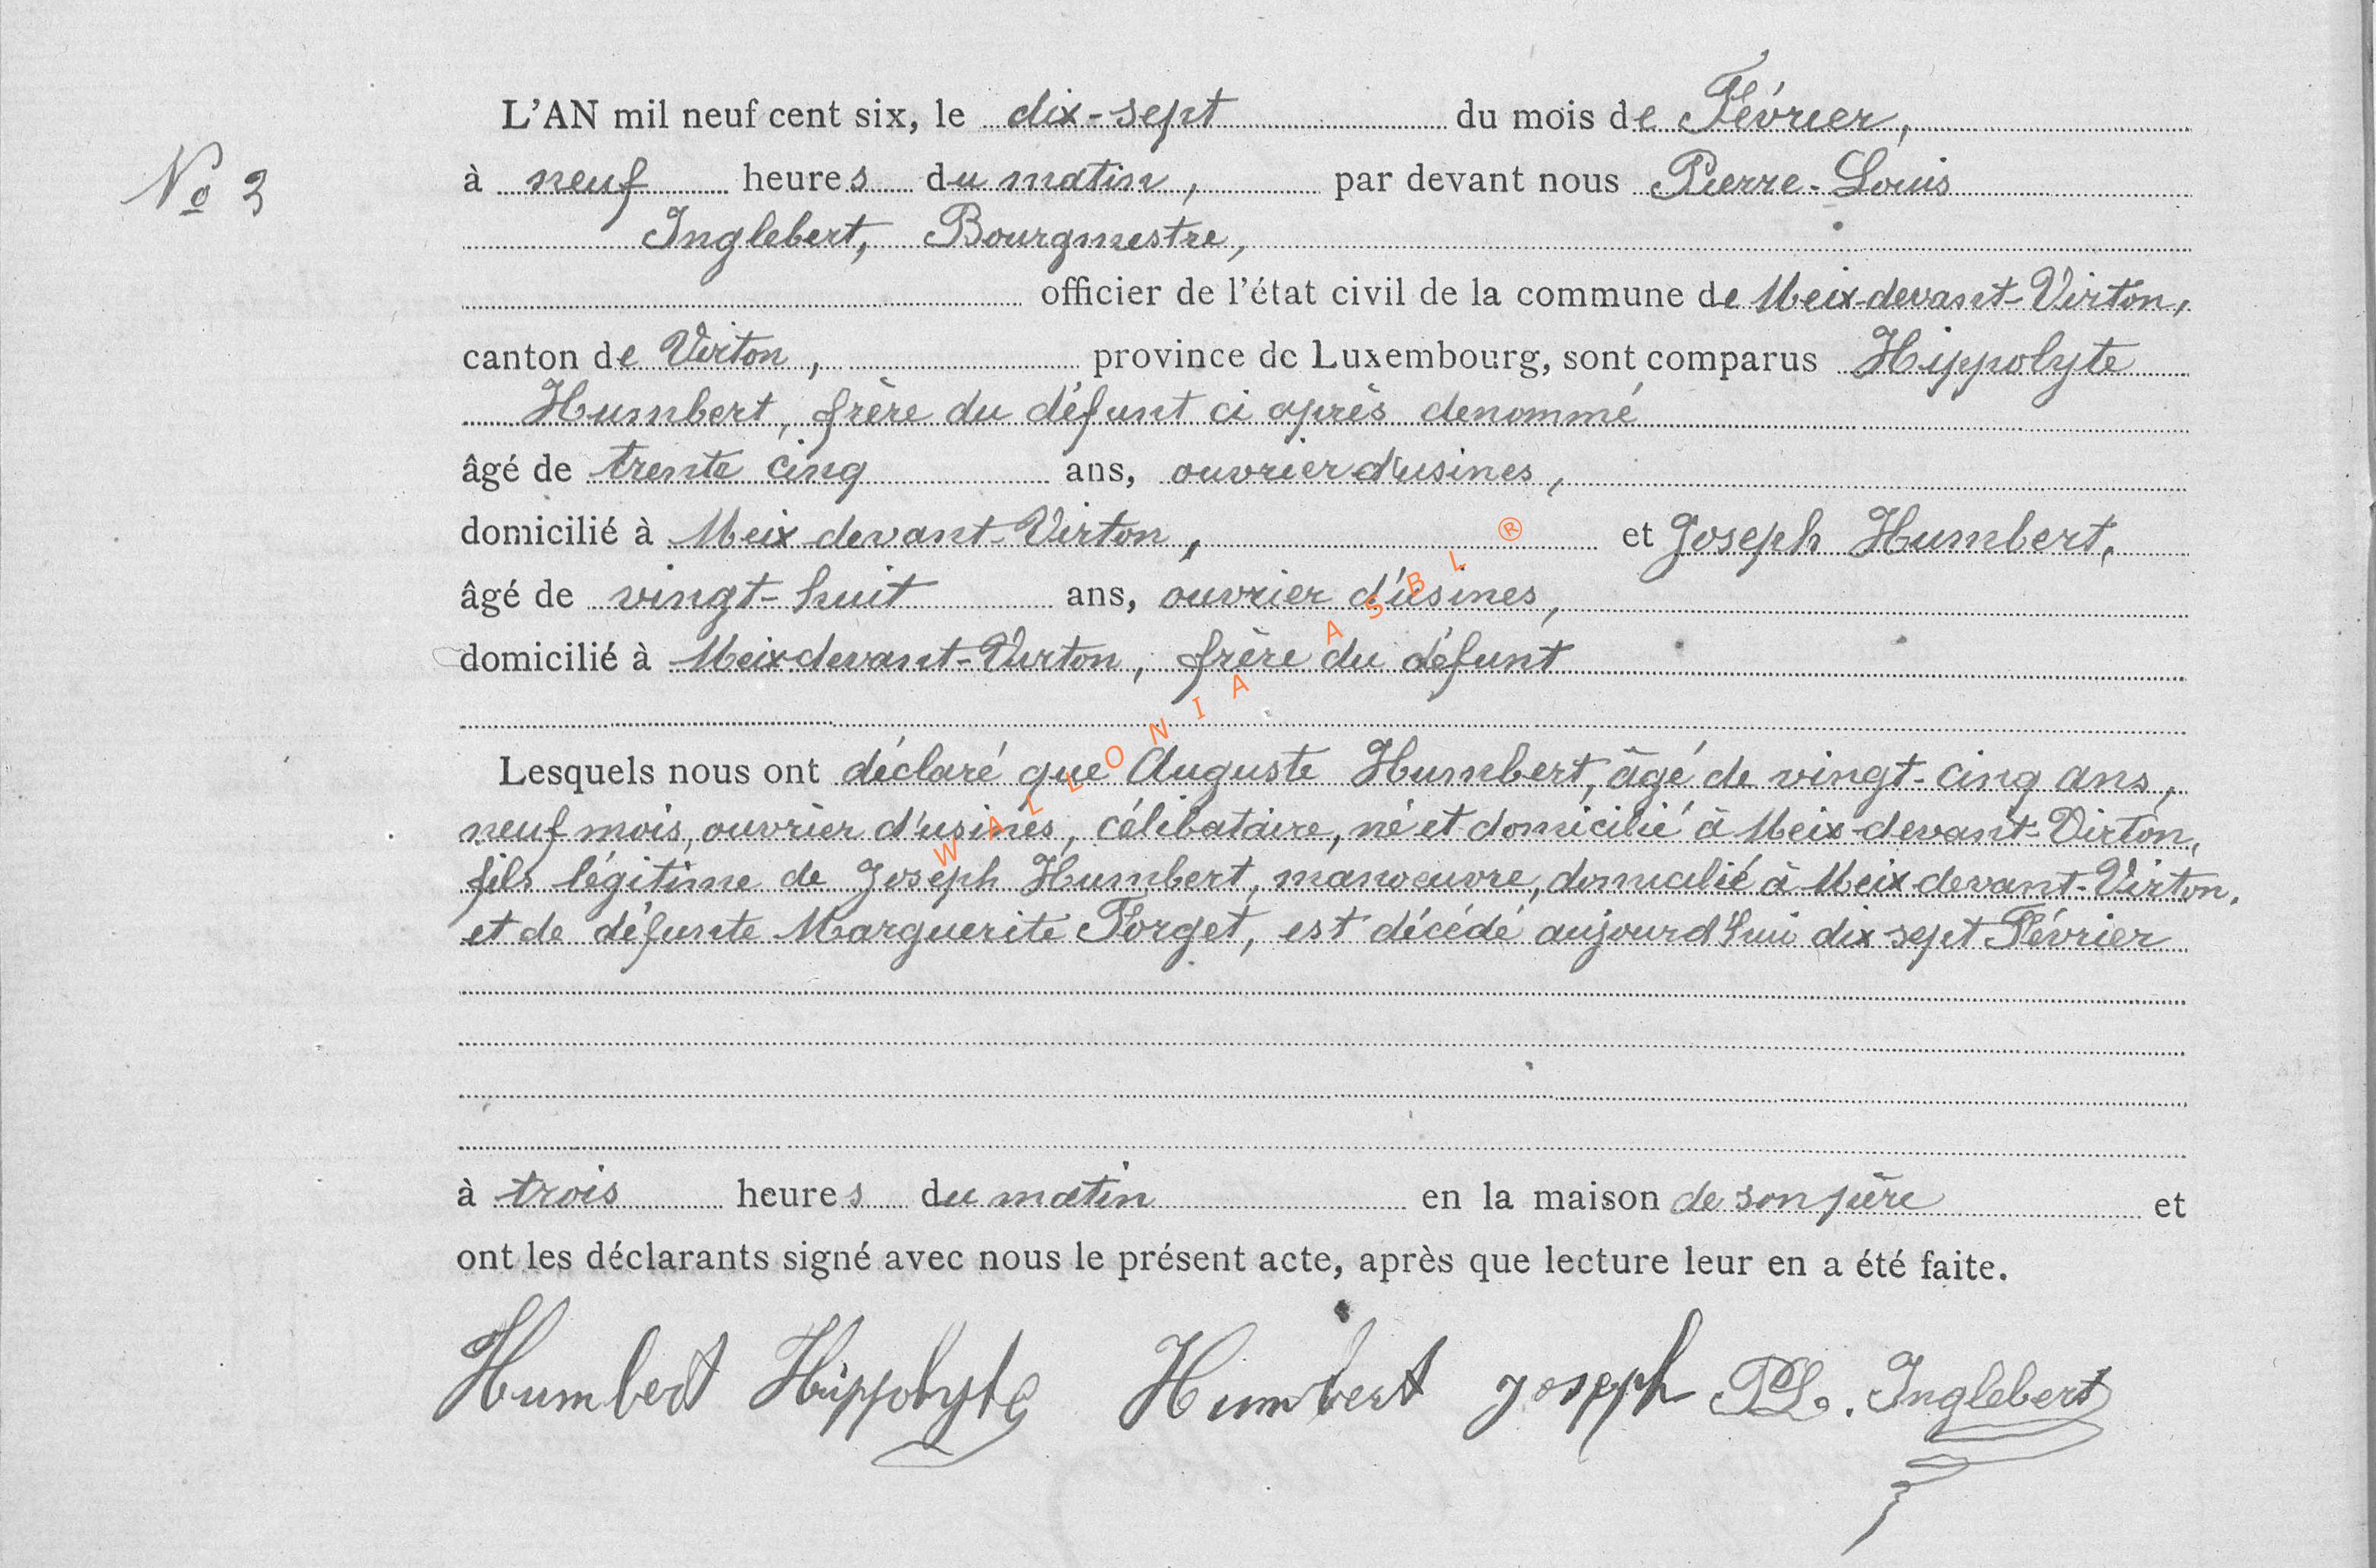 L'AN mil neuf cent six, le dix-sept du mois de Février,
N° 3 à neuf heures du matin, par devant nous Pierre-Louis
Inglebert, Bourgmestre,
officier de l'état civil de la commune de Meix-devant-Virton,
canton de Virton, province de Luxembourg, sont comparus Hippolyte
Humbert, frère du défunt ci après denommé
âgé de trente cinq ans, ouvrier d'usines,
domicilié à Meix devant-Virton, et Joseph Humbert,
âgé de vingt-huit ans, ouvrier d'usines,
domicilié à Meix devant-Virton, frère du défunt
Lesquels nous ont déclaré que Auguste Humbert, âgé de vingt-cinq ans,
neuf mois, ouvrier d'usines, célibataire, né et domicilié à Meix-devant-Virton,
fils légitime de Joseph Humbert, manoeuvre, domicilié à Meix devant-Virton,
et de défunte Marguerite Forget, est décédé aujourd'hui dix sept Février
à trois heures du matin en la maison de son père et
ont les déclarants signé avec nous le présent acte, après que lecture leur en a été faite.
Humbert Hippolyte Humbert joseph PL. Inglebert
WALLONIA ASBL ®